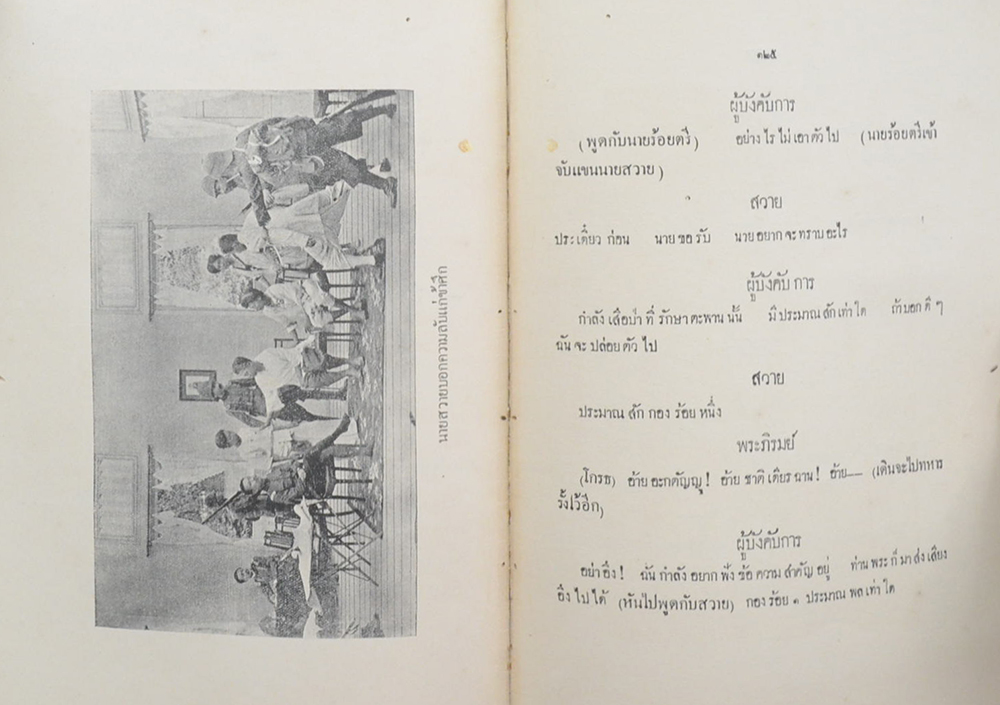 นายสวายบอกความลับแก่ข้าศึก
๓๒๕
ผู้บังคับการ
(พูดกับนายร้อยตรี) อย่างไรไม่เอาตัวไป (นายร้อยตรีเข้า
จับแขนนายสวาย)
สวาย
ประเดี๋ยวก่อน นายขอรับ นายอยากจะทราบอะไร
ผู้บังคับการ
กำลังเสือป่าที่รักษาตะพานนั้น มีประมาณสักเท่าใด ถ้าบอกดี ๆ
ฉันจะปล่อยตัวไป
สวาย
ประมาณสักกองร้อยหนึ่ง
พระภิรมย์
(โกรธ) อ้ายอะกตัญญู! อ้ายชาติเดียรฉาน! อ้าย— (เดินจะไปทหาร
รั้งไว้อีก)
ผู้บังคับการ
อย่าอึง! ฉันกำลังอยากฟังข้อความสำคัญอยู่ ท่านพระก็มาส่งเสียง
อึงไปได้ (หันไปพูดกับสวาย) กองร้อย ๑ ประมาณพลเท่าใด